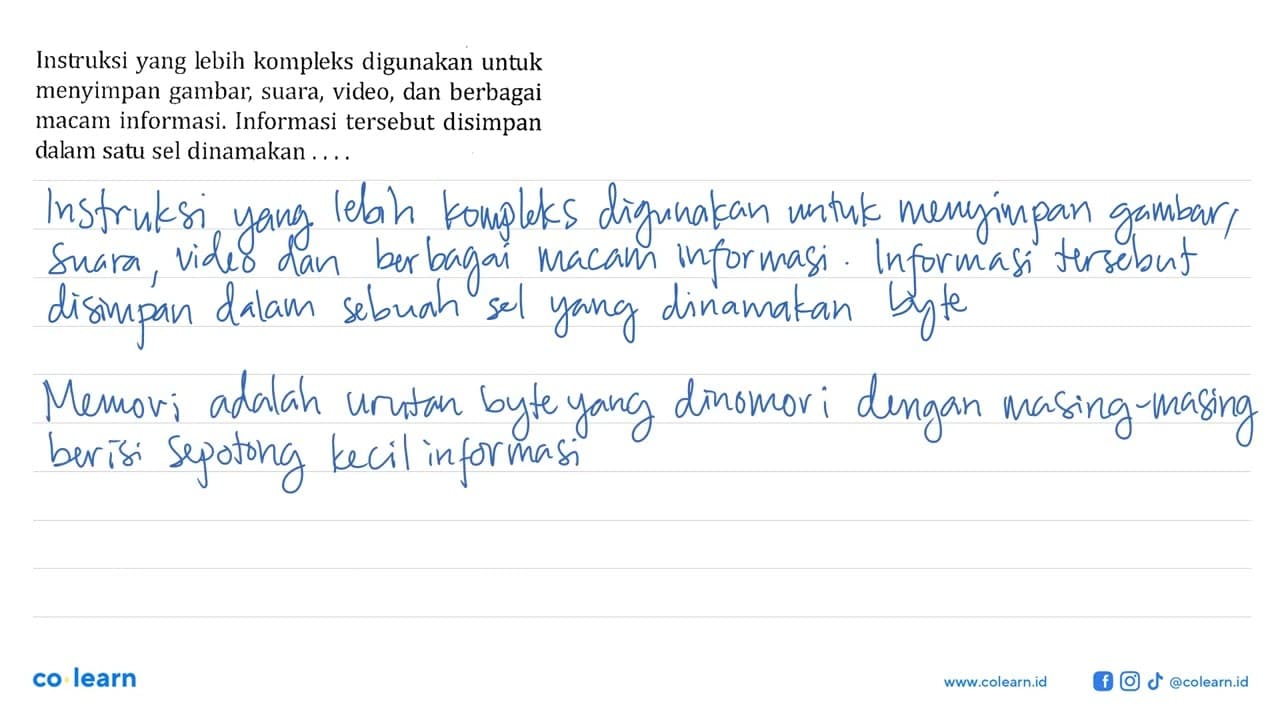 Instruksi yang lebih kompleks digunakan untuk
menyimpan gambar, suara, video, dan berbagai
macam informasi. Informasi tersebut disimpan
dalam satu sel dinamakan ....
Instruksi yang lebih kompleks digunakan untuk menyimpan gambar,
suara, video dan berbagai macam informasi. Informasi tersebut
disimpan dalam sebuah sel yang dinamakan byte
Memori adalah urutan byte yang dinomori dengan masing-masing
berisi sepotong kecil informasi
co learn
www.colearn.id
@colearn.id